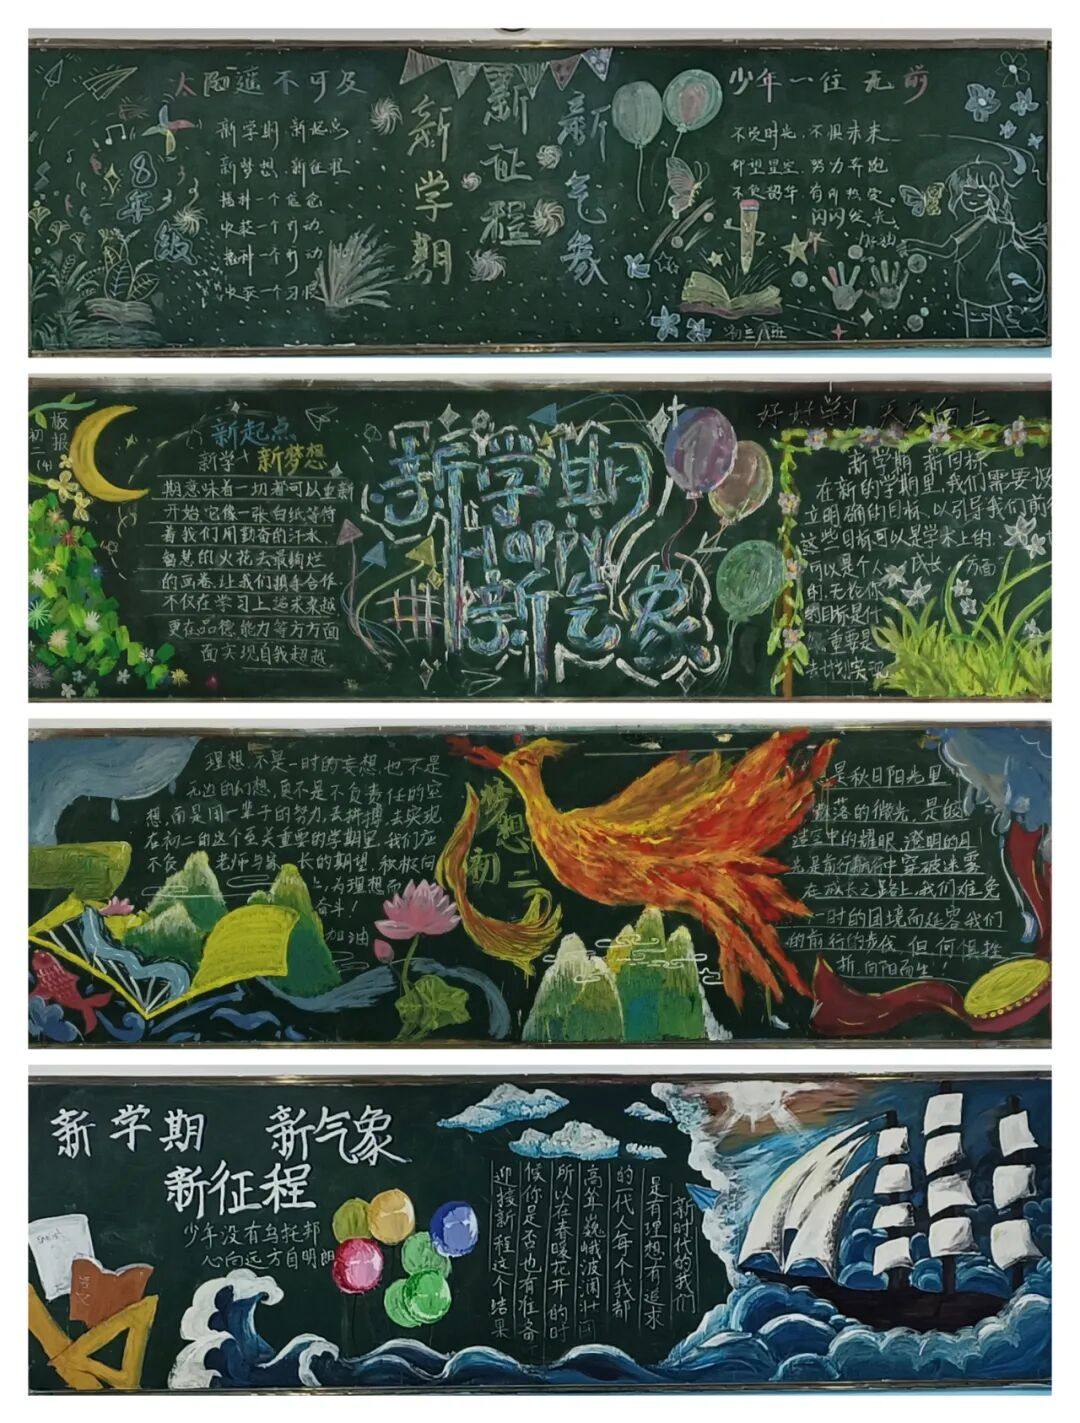 太阳遥不可及
8年级
新学期 新起点
新梦想 新征程
播种一个信念
收获一个行动
播种一个行动
收获一个习惯
新学期
新征程
新气象
少年一往无前
不负时光,不惧未来
仰望星空,努力奔跑
不负韶华,有所热爱
闪闪发光
加油
初二八班
板报
初二(4)
新起点
新学 新梦想
期意味着一切都可以重新
开始,它像一张白纸等待
着我们用勤奋的汗水
智慧的火花去最绚烂
的画卷,让我们携手合作
不仅在学习上追求卓越
更在品德,能力等方方面
面实现自我超越
新学期
Happy
新气象
好好学习 天天向上
新学期 新目标
在新的学期里,我们需要设
立明确的目标,以引导我们前行
这些目标可以是学术上的,
可以是个人 成长 方面
的,无论你
的目标是什
重要是
去计划实现
理想,不是一时的妄想,也不是
无边的幻想,更不是不负责任的空
想,而是用一辈子的努力,去拼搏,去实现
在初二的这个至关重要的学期里,我们应
不负 老师与家 长的期望,积极向
上,为理想而
奋斗!
加油
梦想
初二
总是秋日阳光里
散落的微光,是皎
洁空中的耀眼,澄明的月
光是前行航行中穿破迷雾
在成长之路上,我们难免
一时的困境而延宕我们
的前行的步伐,但何惧挫
折,向阳而生!
新学期 新气象
新征程
少年没有乌托邦
心向远方自明朗
语文
新时代的我们
是有理想有追求
的一代人每个我都
高耸巍峨波澜壮阔
所以在春暖花开的时
候你是否也有准备
迎接新程这个结果